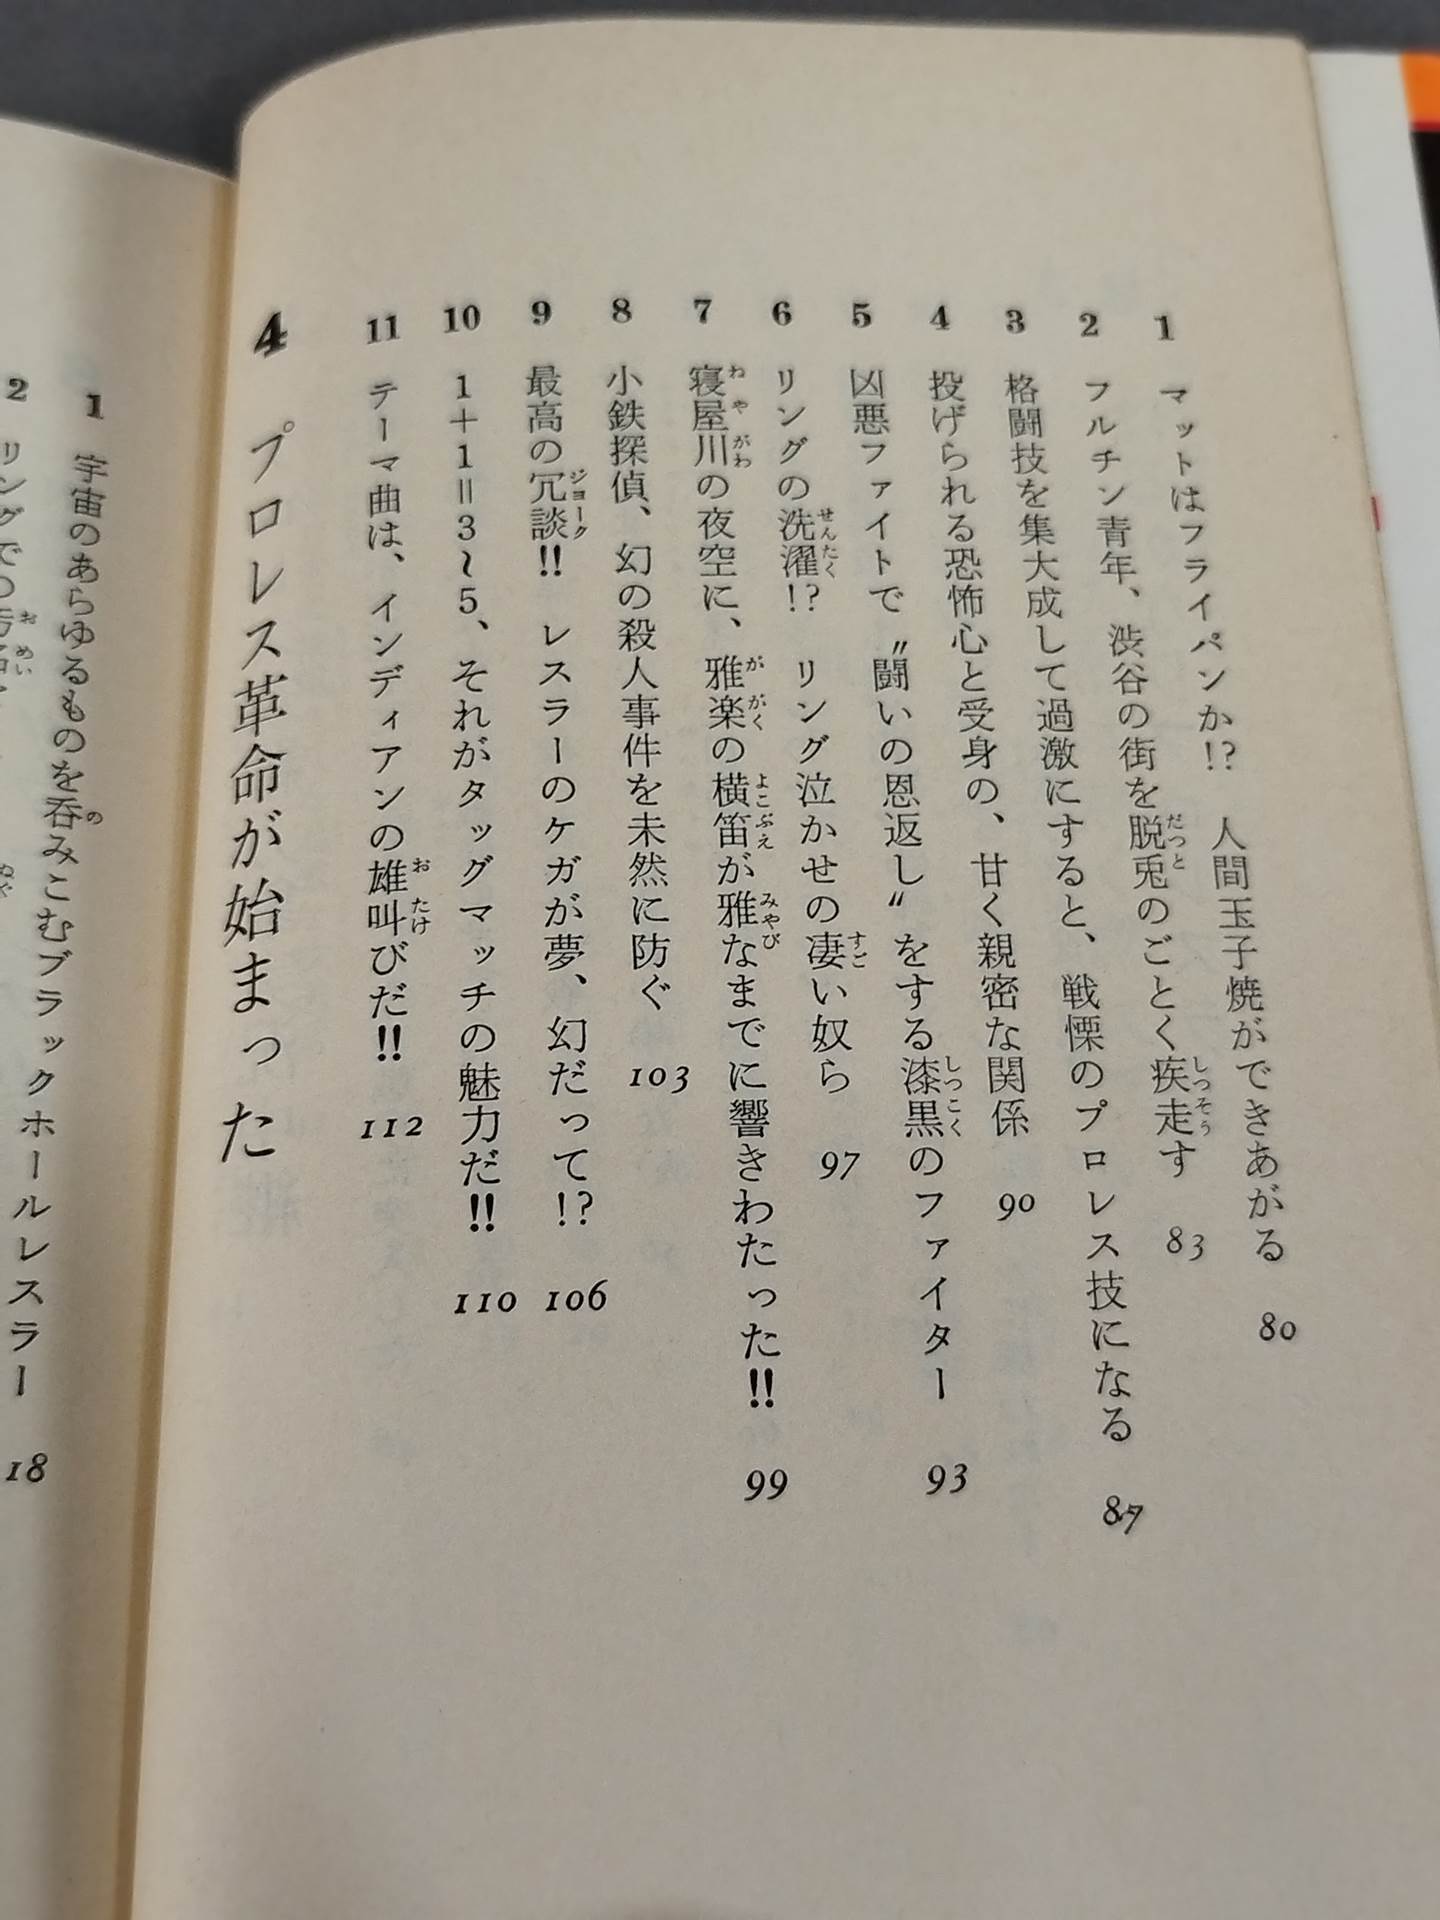 1 マットはフライパンか!? 人間玉子焼ができあがる 80
2 フルチン青年、渋谷の街を脱兎のごとく疾走す 83
3 格闘技を集大成して過激にすると、戦慄のプロレス技になる 87
4 投げられる恐怖心と受身の、甘く親密な関係 90
5 凶悪ファイトで〝闘いの恩返し〟をする漆黒のファイター 93
6 リングの洗濯!? リング泣かせの凄い奴ら 97
7 寝屋川の夜空に、雅楽の横笛が雅なまでに響きわたった!! 99
8 小鉄探偵、幻の殺人事件を未然に防ぐ 103
9 最高の冗談!! レスラーのケガが夢、幻だって!? 106
10 1+1=3~5、それがタッグマッチの魅力だ!! 110
11 テーマ曲は、インディアンの雄叫びだ!! 112
4 プロレス革命が始まった
1 宇宙のあらゆるものを呑みこむブラックホールレスラー 18
2 リングでの